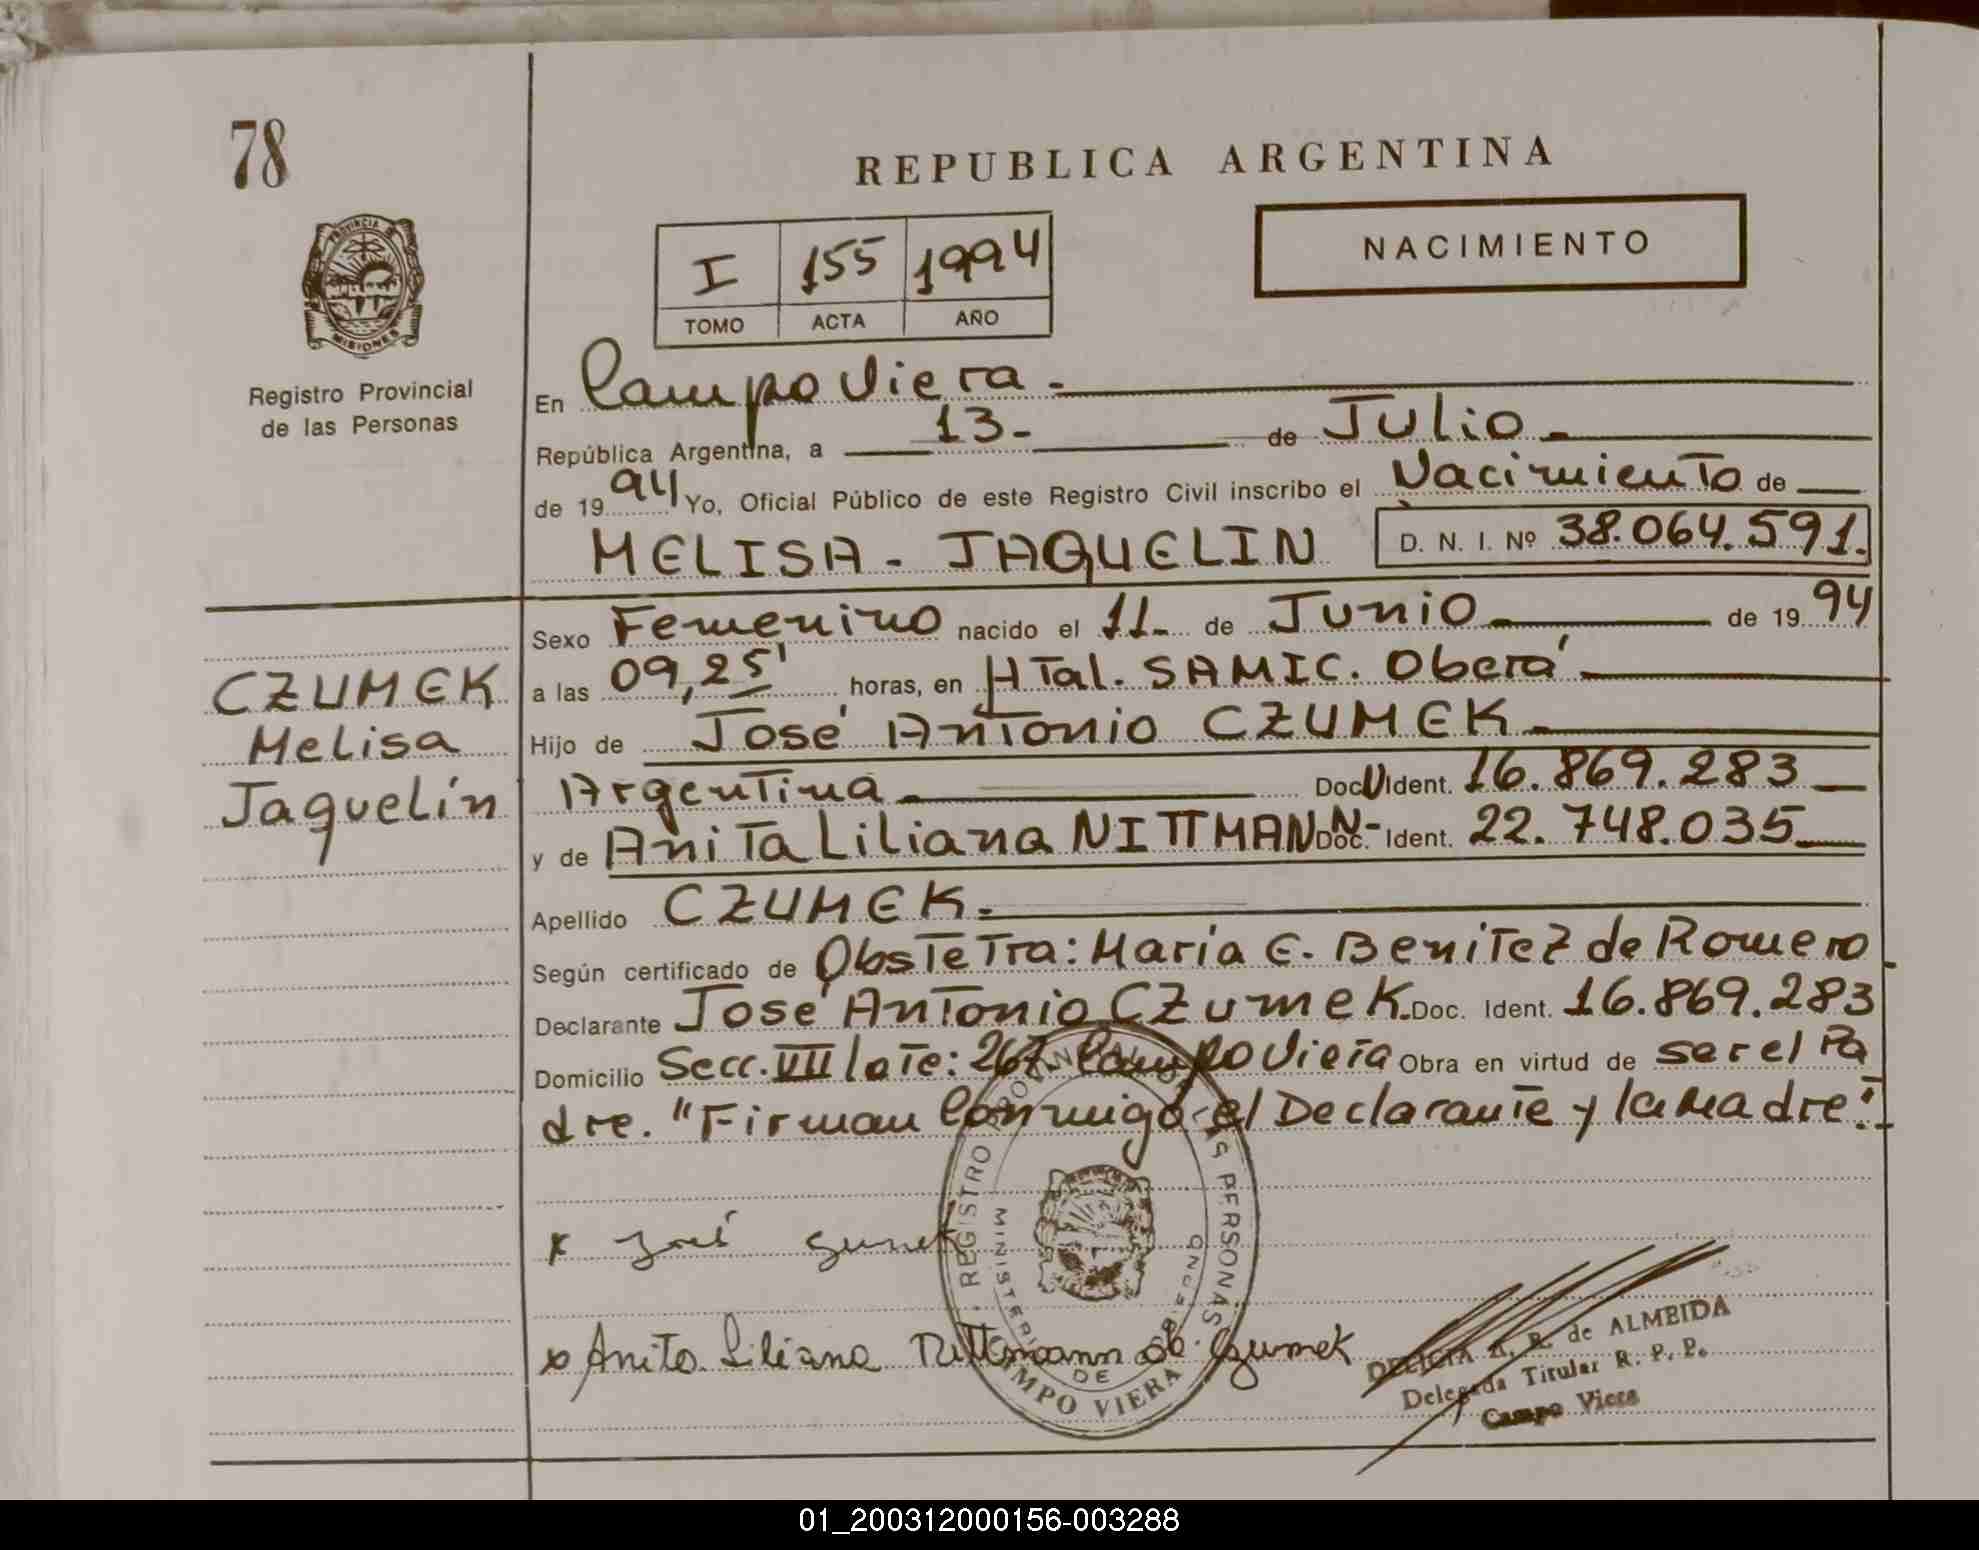 78
REPUBLICA ARGENTINA
PROVINCIA DE
MISIONES
Registro Provincial
de las Personas
I 155 1994
TOMO ACTA AÑO
NACIMIENTO
En Campo Viera.-
República Argentina, a 13- de Julio.-
de 1994 Yo, Oficial Público de este Registro Civil inscribo el Nacimiento de
MELISA - JAQUELIN D. N. I. Nº 38.064.591.
CZUMEK
Melisa
Jaquelín
Sexo Femenino nacido el 11- de Junio de 1994
a las 09,25' horas, en HTal. SAMIC. Oberá
Hijo de José Antonio CZUMEK.
Argentina Doc U Ident. 16.869.283
y de Anita Liliana NITTMANN- Doc. Ident. 22.748.035
Apellido CZUMEK.
Según certificado de Obstetra: María E. Benitez de Romero
Declarante José Antonio CZUMEK. Doc. Ident. 16.869.283
Domicilio Secc. VII lote: 267 Campo Viera Obra en virtud de ser el Pa
dre. "Firman Conmigo el Declarante y la Madre".
x José
x Anita Liliana Nittmann de Czumek
REGISTRO PROVINCIAL DE LAS PERSONAS
MINISTERIO DE GOBIERNO
CAMPO VIERA
DELICIA A. R. de ALMEIDA
Delegada Titular R. P. P.
Campo Viera
01_200312000156-003288